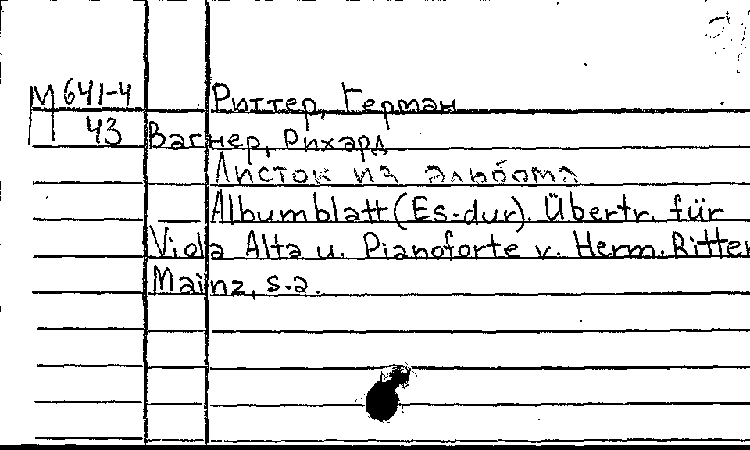 М 641-4 Риттер, Герман
43 Вагнер, Рихард
Листок из альбома
Albumblatt (Es-dur). Übertr. für
Viola Alta u. Pianoforte v. Herm. Ritter
Mainz, s.a.